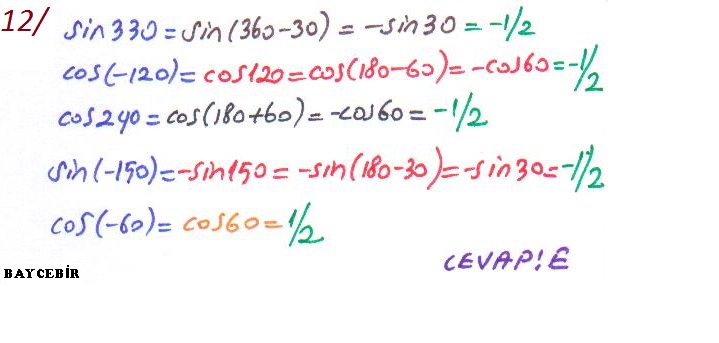 12/ sin330=sin(360-30)=-sin30=-1/2
cos(-120)=cos120=cos(180-60)=-cos60=-1/2
cos240=cos(180+60)=-cos60=-1/2
sin(-150)=-sin150=-sin(180-30)=-sin30=-1/2
cos(-60)=cos60=1/2
CEVAP!E
BAYCEBİR